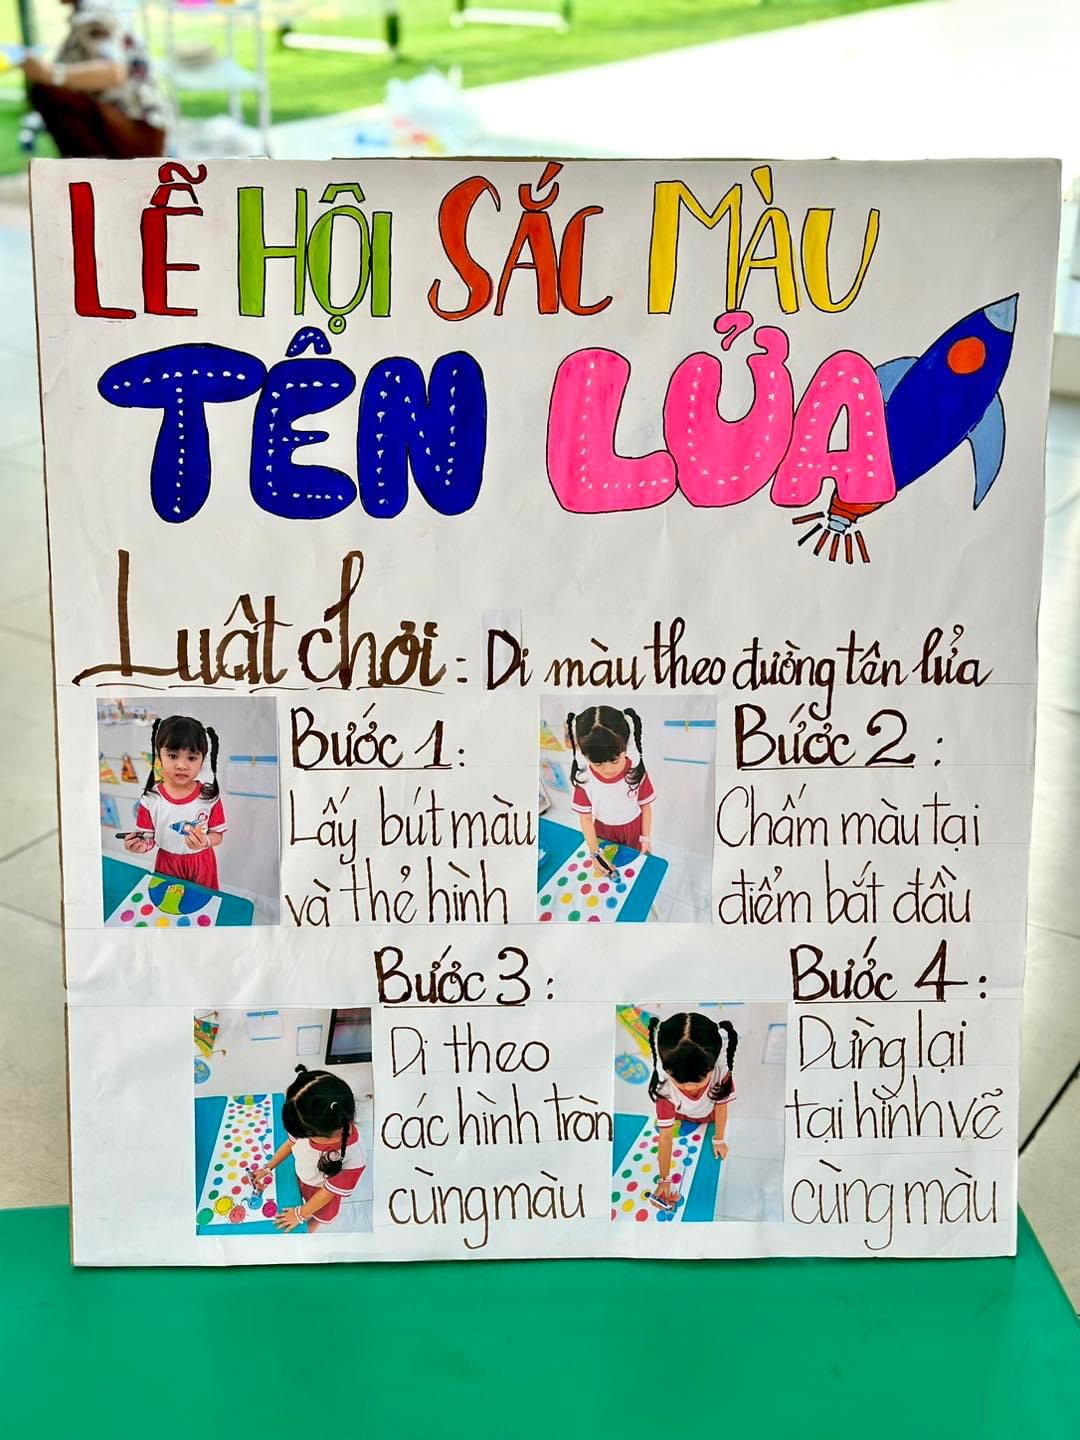 LỄ HỘI SẮC MÀU
TÊN LỬA
Luật chơi: Di màu theo đường tên lửa
Bước 1:
Lấy bút màu
và thẻ hình
Bước 2:
Chấm màu tại
điểm bắt đầu
Bước 3:
Di theo
các hình tròn
cùng màu
Bước 4:
Dừng lại
tại hình vẽ
cùng màu